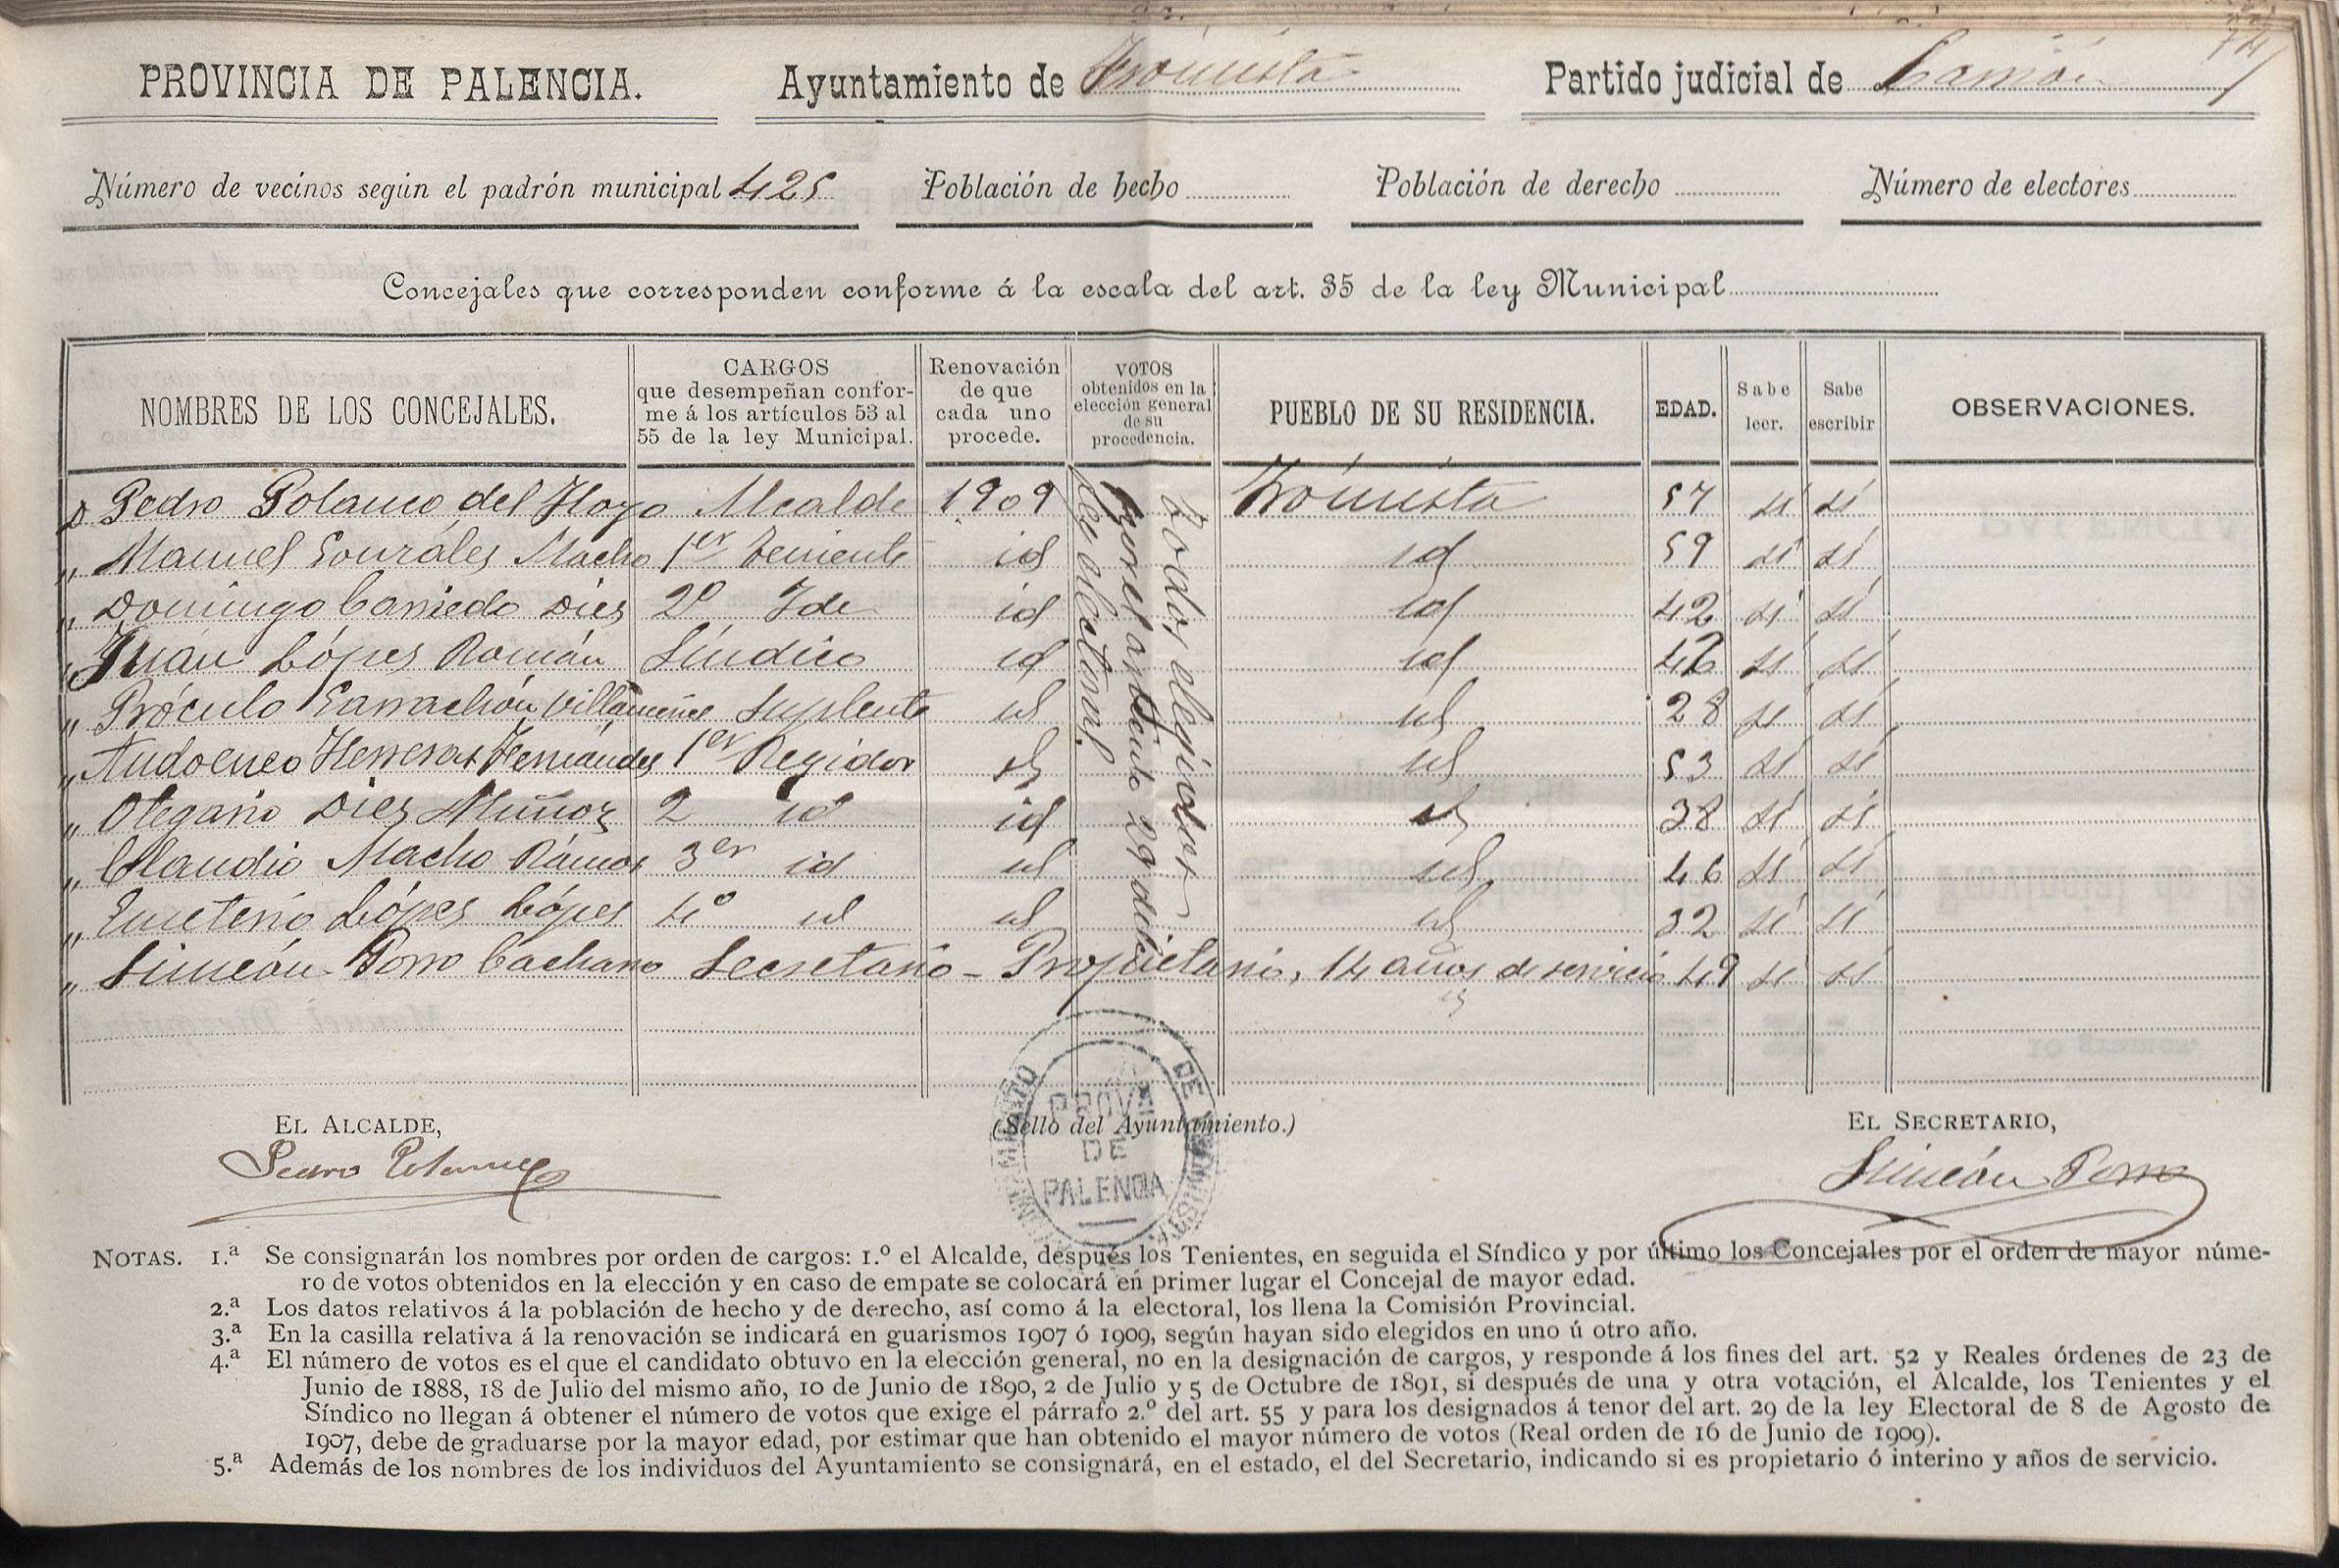 74
PROVINCIA DE PALENCIA. Ayuntamiento de Frómista Partido judicial de Carrión
Número de vecinos según el padrón municipal 425 Población de hecho Población de derecho Número de electores
Concejales que corresponden conforme á la escala del art. 35 de la ley Municipal
NOMBRES DE LOS CONCEJALES.
CARGOS
que desempeñan confor-
me á los artículos 53 al
55 de la ley Municipal.
Renovación
de que
cada uno
procede.
VOTOS
obtenidos en la
elección general
de su
procedencia.
PUEBLO DE SU RESIDENCIA.
EDAD.
Sabe
leer.
Sabe
escribir
OBSERVACIONES.
D Pedro Polanco del Hoyo Alcalde 1909 Frómista 57 sí sí
„ Manuel Gonzáles Macho 1er Teniente id id 59 sí sí
„ Domingo Carriedo Dies 2º Ide id id 42 sí sí
„ Juan Lópes Román Síndico id id 46 sí sí
„ Próculo Garrachón Villameriel Suplente id id 28 sí sí
„ Audoeneo Herreros Fernándes 1er Regidor id id 53 sí sí
„ Olegario Dies Muñoz 2 id id id 38 sí sí
„ Claudio Macho Rámos 3er id id id 46 sí sí
„ Emeterio Lópes Lópes 4º id id id 32 sí sí
„ Simeón Porro Cachano Secretario - Propietario, 14 años de servicio 49 sí sí
Todos elegidos
por el artículo 29 de la
ley electoral.
EL ALCALDE,
Pedro Polanco
(Sello del Ayuntamiento.)
AYUNTAMIENTO DE FROMISTA
PROVA
DE
PALENCIA
EL SECRETARIO,
Simeón Porro
NOTAS. 1.ª Se consignarán los nombres por orden de cargos: 1.º el Alcalde, después los Tenientes, en seguida el Síndico y por último los Concejales por el orden de mayor núme-
ro de votos obtenidos en la elección y en caso de empate se colocará en primer lugar el Concejal de mayor edad.
2.ª Los datos relativos á la población de hecho y de derecho, así como á la electoral, los llena la Comisión Provincial.
3.ª En la casilla relativa á la renovación se indicará en guarismos 1907 ó 1909, según hayan sido elegidos en uno ú otro año.
4.ª El número de votos es el que el candidato obtuvo en la elección general, no en la designación de cargos, y responde á los fines del art. 52 y Reales órdenes de 23 de
Junio de 1888, 18 de Julio del mismo año, 10 de Junio de 1890, 2 de Julio y 5 de Octubre de 1891, si después de una y otra votación, el Alcalde, los Tenientes y el
Síndico no llegan á obtener el número de votos que exige el párrafo 2.º del art. 55 y para los designados á tenor del art. 29 de la ley Electoral de 8 de Agosto de
1907, debe de graduarse por la mayor edad, por estimar que han obtenido el mayor número de votos (Real orden de 16 de Junio de 1909).
5.ª Además de los nombres de los individuos del Ayuntamiento se consignará, en el estado, el del Secretario, indicando si es propietario ó interino y años de servicio.